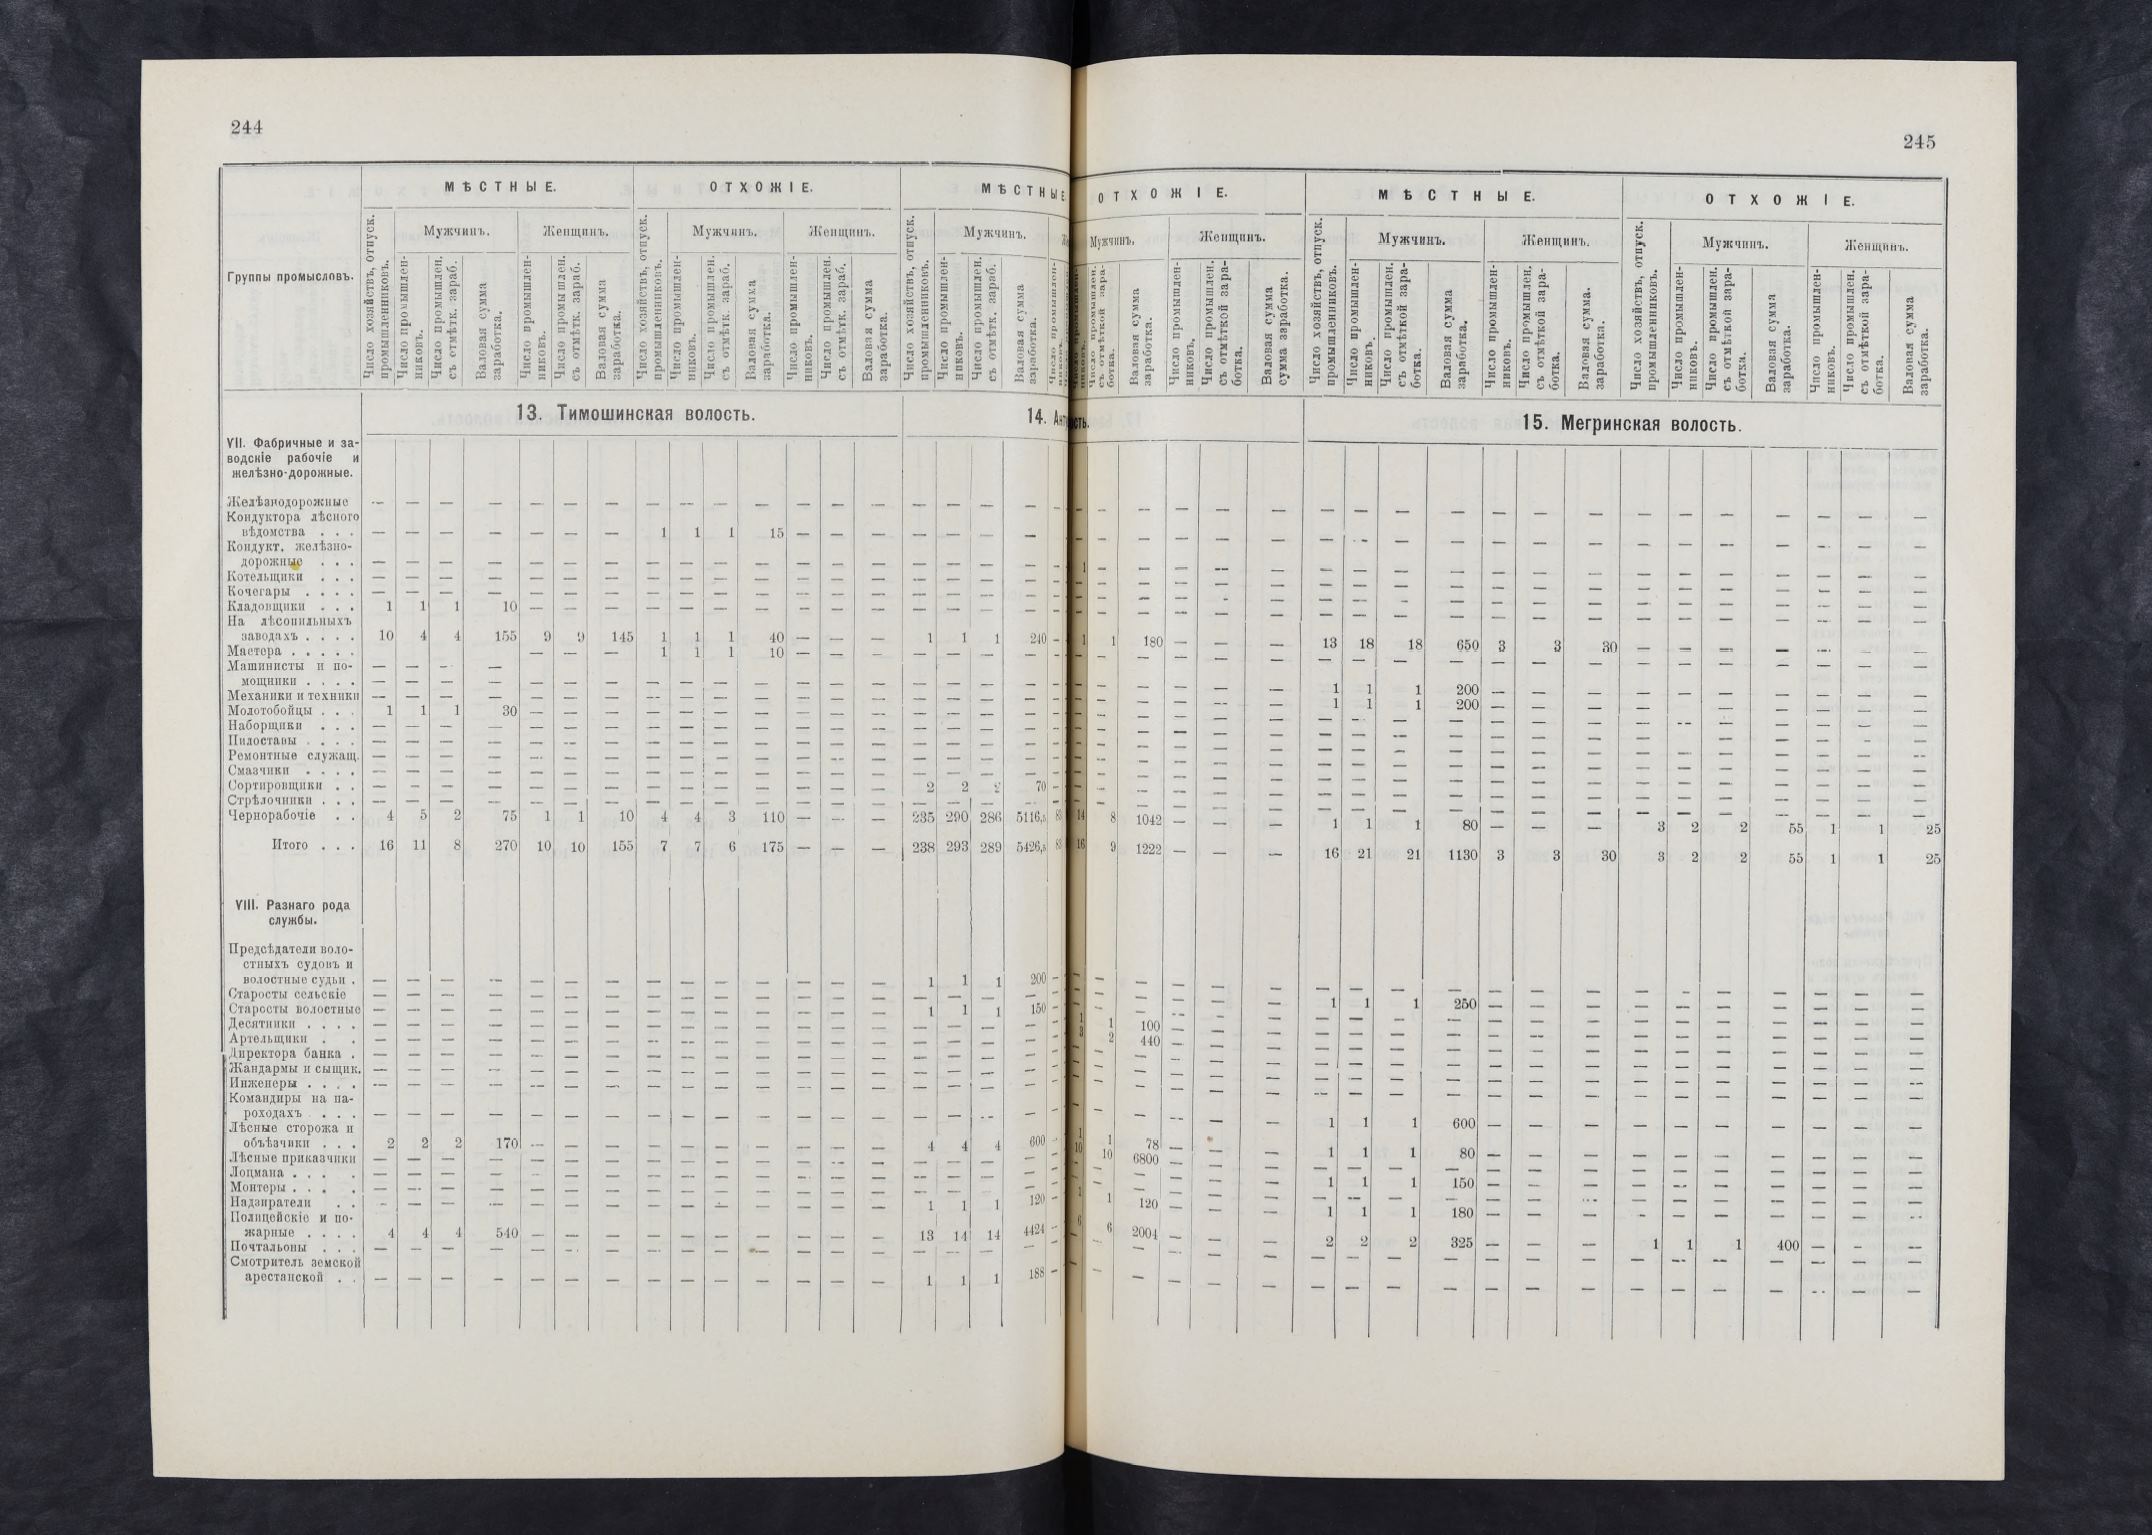 244
245
МѢСТНЫЕ. ОТХОЖІЕ. МѢСТНЫЕ ОТХОЖІЕ. МѢСТНЫЕ. ОТХОЖІЕ.
Группы промысловъ.
Число хозяйствъ, отпуск. промышленниковъ.
Мужчинъ. Женщинъ. Мужчинъ. Женщинъ. Мужчинъ. Мужчинъ. Женщинъ. Мужчинъ. Женщинъ. Мужчинъ. Женщинъ.
Число промышленниковъ.
Число промышлен. съ отмѣтк. зараб.
Валовая сумма заработка.
Число промышленниковъ.
Число промышлен. съ отмѣтк. зараб.
Валовая сумма заработка.
Число хозяйствъ, отпуск. промышленниковъ.
Число промышленниковъ.
Число промышлен. съ отмѣтк. зараб.
Валовая сумма заработка.
Число промышленниковъ.
Число промышлен. съ отмѣтк. зараб.
Валовая сумма заработка.
Число хозяйствъ, отпуск. промышленниковъ.
Число промышленниковъ.
Число промышлен. съ отмѣтк. зараб.
Валовая сумма заработка.
Число промышлен. съ отмѣткой заработка.
Валовая сумма заработка.
Число промышленниковъ.
Число промышлен. съ отмѣткой заработка.
Валовая сумма сумма заработка.
Число хозяйствъ, отпуск. промышленниковъ.
Число промышленниковъ.
Число промышлен. съ отмѣткой заработка.
Валовая сумма заработка.
Число промышленниковъ.
Число промышлен. съ отмѣткой заработка.
Валовая сумма. заработка.
Число хозяйствъ, отпуск. промышленниковъ.
Число промышленниковъ.
Число промышлен. съ отмѣткой заработка.
Валовая сумма заработка.
Число промышленниковъ.
Число промышлен. съ отмѣткой заработка.
Валовая сумма заработка.
13. Тимошинская волость. 14. 15. Мегринская волость.
VII. Фабричные и за-
водскіе рабочіе и
желѣзно-дорожные.
Желѣзнодорожные — — — — — — — — — — — — — — — — — —
Кондуктора лѣсного
вѣдомства . . . — — — — — — — 1 1 1 15 — — — — — — —
Кондукт. желѣзно-
дорожные . . . — — — — — — — — — — — — — — — — — — 1 —
Котельщики . . . — — — — — — — — — — — — — — — — — —
Кочегары . . . . — — — — — — — — — — — — — — — — — —
Кладовщики . . . 1 1 1 10 — — — — — — — — — — — — — —
На лѣсопильныхъ
заводахъ . . . . 10 4 4 155 9 9 145 1 1 1 40 — — — 1 1 1 240 — 1 1 180 — — — 13 18 18 650 3 3 30 — — — — — — —
Мастера . . . . . — — — 1 1 1 10 — — — — — — —
Машинисты и по- — — — —
мощники . . . . — — — — — — — — — — — — — — — — — — 1 1 1 200 — — —
Механики и техники — — — — — — — — — — — — — — — — — — 1 1 1 200 — — —
Молотобойцы . . . 1 1 1 30 — — — — — — — — — — — — — —
Наборщики . . . — — — — — — — — — — — — — — — — — —
Пилоставы . . . . — — — — — — — — — — — — — — — — — —
Ремонтные служащ. — — — — — — — — — — — — — — — — — —
Смазчики . . . . — — — — — — — — — — — — — — — — — —
Сортировщики . . — — — — — — — — — — — — — — 2 2 2 70 —
Стрѣлочники . . . — — — — — — — — — — — — — — — — — —
Чернорабочіе . . 4 5 2 75 1 1 10 4 4 3 110 — — — 235 290 286 5116,5 14 8 1042 — — — 1 1 1 80 — — — 3 2 2 55 1 1 25
Итого . . . 16 11 8 270 10 10 155 7 7 6 175 — — — 238 293 289 5426,5 16 9 1222 — — — 16 21 21 1130 3 3 30 3 2 2 55 1 1 25
VIII. Разнаго рода
службы.
Предсѣдатели воло-
стныхъ судовъ и
волостные судьи . — — — — — — — — — — — — — — 1 1 1 200 —
Старосты сельскіе — — — — — — — — — — — — — — — — — — 1 1 1 250 — — —
Старосты волостные — — — — — — — — — — — — — — 1 1 1 150 —
Десятники . . . . — — — — — — — — — — — — — — — — — — 1 1 100 — — —
Артельщики . . — — — — — — — — — — — — — — — — — — 3 2 440 — — —
Директора банка . — — — — — — — — — — — — — — — — — —
Жандармы и сыщик. — — — — — — — — — — — — — — — — — —
Инженеры . . . . — — — — — — — — — — — — — — — — — —
Командиры на па-
роходахъ . . . — — — — — — — — — — — — — — — — — — 1 1 1 600 — — —
Лѣсные сторожа и
объѣзчики . . . 2 2 2 170 — — — — — — — — — — 4 4 4 600 — 1 1 78 — — — 1 1 1 80 — — —
Лѣсные приказчики — — — — — — — — — — — — — — — — — — 10 10 6800 — — —
Лоцмана . . . . . — — — — — — — — — — — — — — — — — — 1 1 1 150 — — —
Монтеры . . . . — — — — — — — — — — — — — — — — — —
Надзиратели . . — — — — — — — — — — — — — — 1 1 1 120 — 1 1 120 — — — 1 1 1 180 — — —
Полицейскіе и по-
жарные . . . . 4 4 4 540 — — — — — — — — — — 13 14 14 4424 — 6 6 2004 — — — 2 2 2 325 — — — 1 1 1 400 — — —
Почтальоны . . . — — — — — — — — — — — — — — — — — —
Смотритель земской
арестанской . . — — — — — — — — — — — — — — 1 1 1 188 —